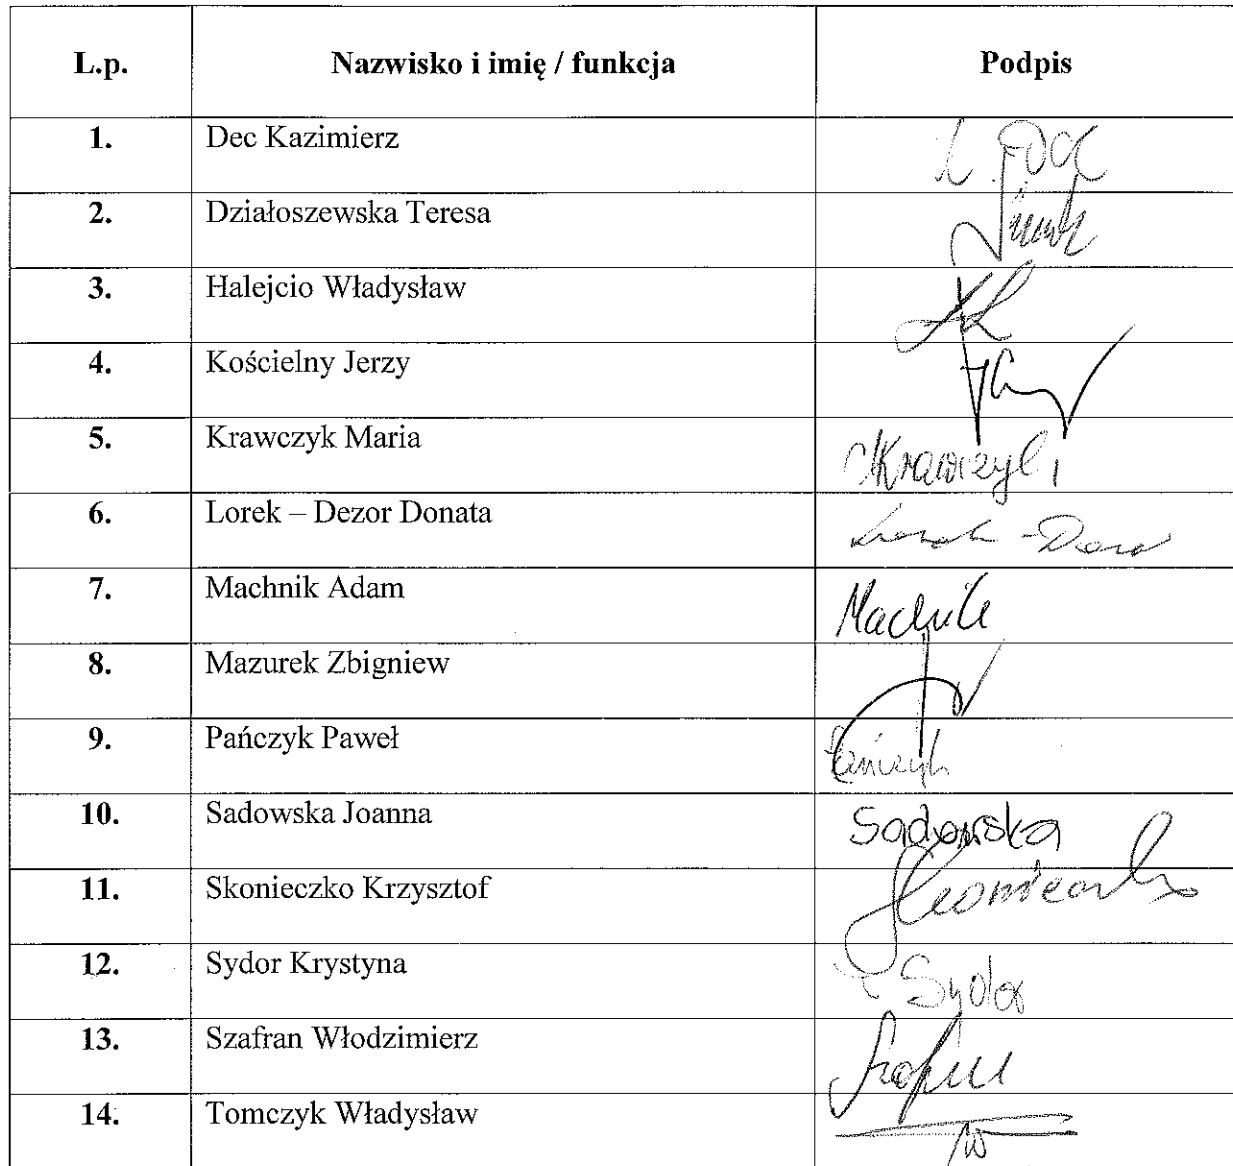 L.p. Nazwisko i imię / funkcja Podpis
1. Dec Kazimierz
2. Działoszewska Teresa
3. Halejcio Władysław
4. Kościelny Jerzy
5. Krawczyk Maria Krawczyk
6. Lorek – Dezor Donata
7. Machnik Adam Machnik
8. Mazurek Zbigniew
9. Pańczyk Paweł Pańczyk
10. Sadowska Joanna Sadowska
11. Skonieczko Krzysztof
12. Sydor Krystyna Sydor
13. Szafran Włodzimierz
14. Tomczyk Władysław